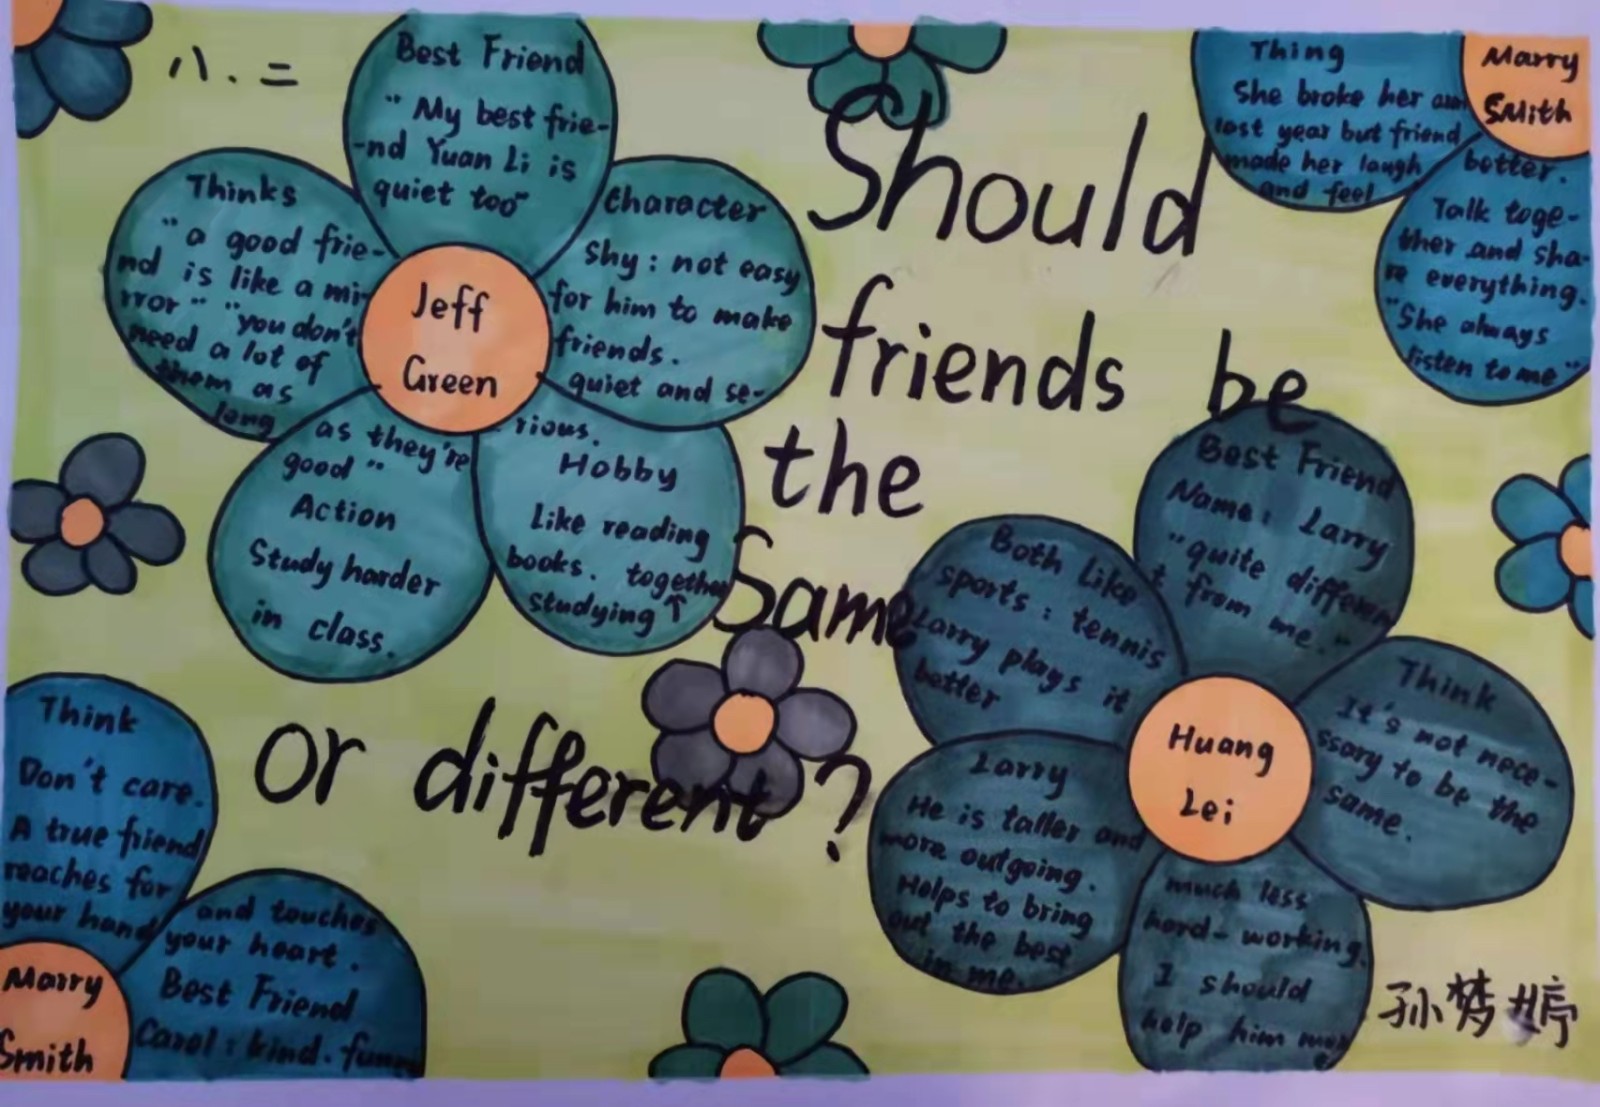 八、二
Should
friends be
the
Same
or different?
Jeff
Green
Best Friend
"My best frie-
-nd Yuan Li is
quiet too"
Character
Shy: not easy
for him to make
friends.
quiet and se-
rious.
Hobby
Like reading
books. together
studying↑
Thinks
"a good frie-
nd is like a mi-
rror" "you don't
need a lot of
them as
long
as they're
good"
Action
Study harder
in class.
Marry
Smith
Thing
She broke her arm
last year but friend
made her laugh
and feel
better.
Talk toge-
ther and sha-
re everything.
"She always
listen to me"
Huang
Lei
Best Friend
Name: Larry
"quite differen
t from me."
Both Like
sports: tennis
Larry plays it
better
Larry
He is taller and
more outgoing.
Helps to bring
out the best
in me.
much less
hard-working.
I should
help him more
Think
It's not nece-
ssary to be the
same.
Think
Don't care.
A true friend
reaches for
your hand
and touches
your heart.
Best Friend
Carol: kind. funny
Marry
Smith
孙梦婷